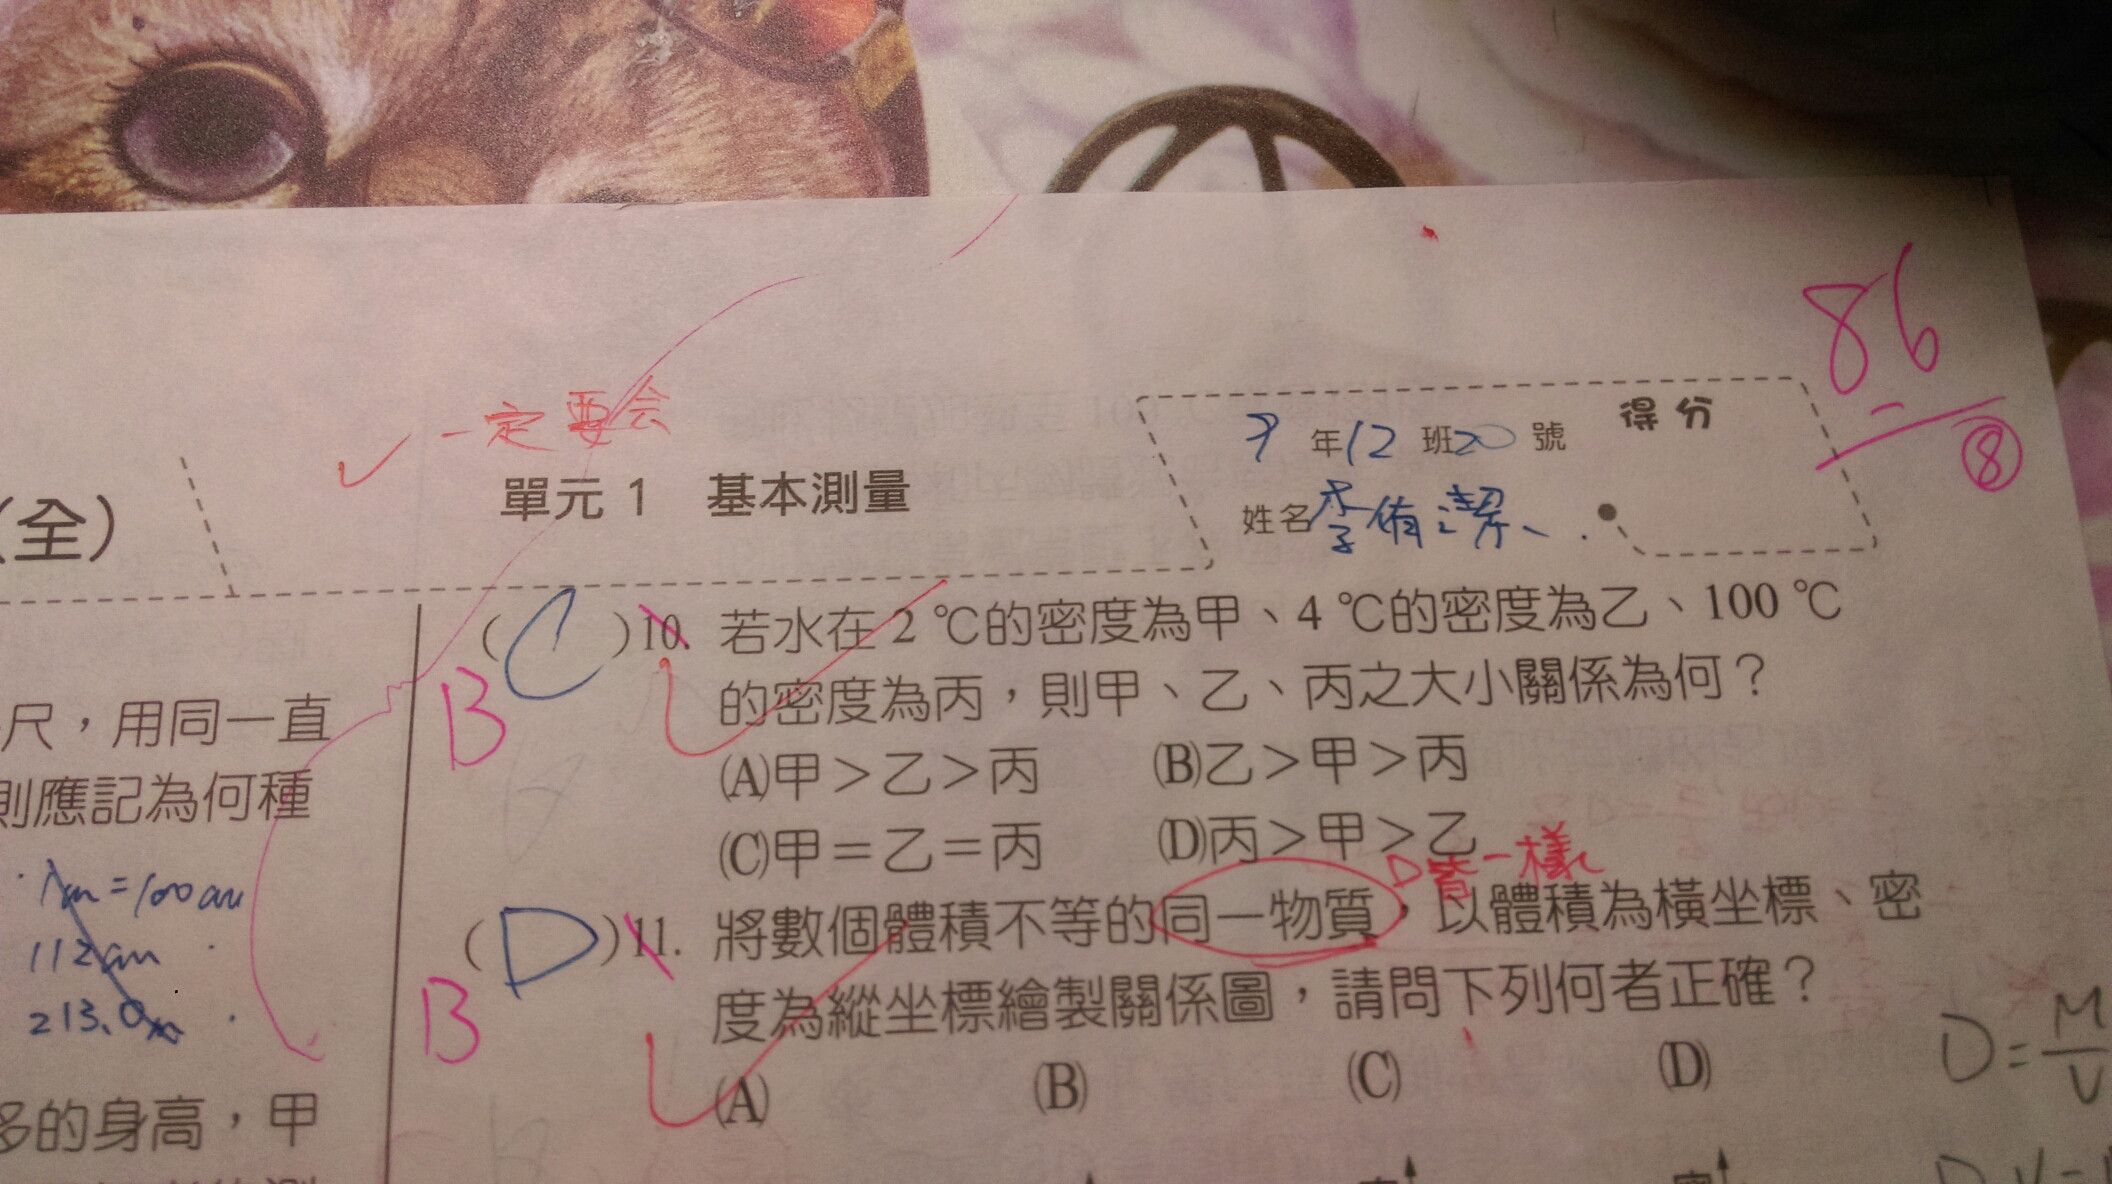 86
⑧
✓一定要会
得分
9年12班20號
(全)
單元1 基本測量
姓名李侑潔
(C)10. 若水在2℃的密度為甲、4℃的密度為乙、100℃
B
的密度為丙,則甲、乙、丙之大小關係為何?
(A)甲>乙>丙 (B)乙>甲>丙
(C)甲=乙=丙 (D)丙>甲>乙
D皆一樣
(D)11. 將數個體積不等的同一物質,以體積為橫坐標、密
B
度為縱坐標繪製關係圖,請問下列何者正確?
(A) (B) (C) (D)
D=M/V
尺,用同一直
則應記為何種
=100cm
112cm
213.0
多的身高,甲